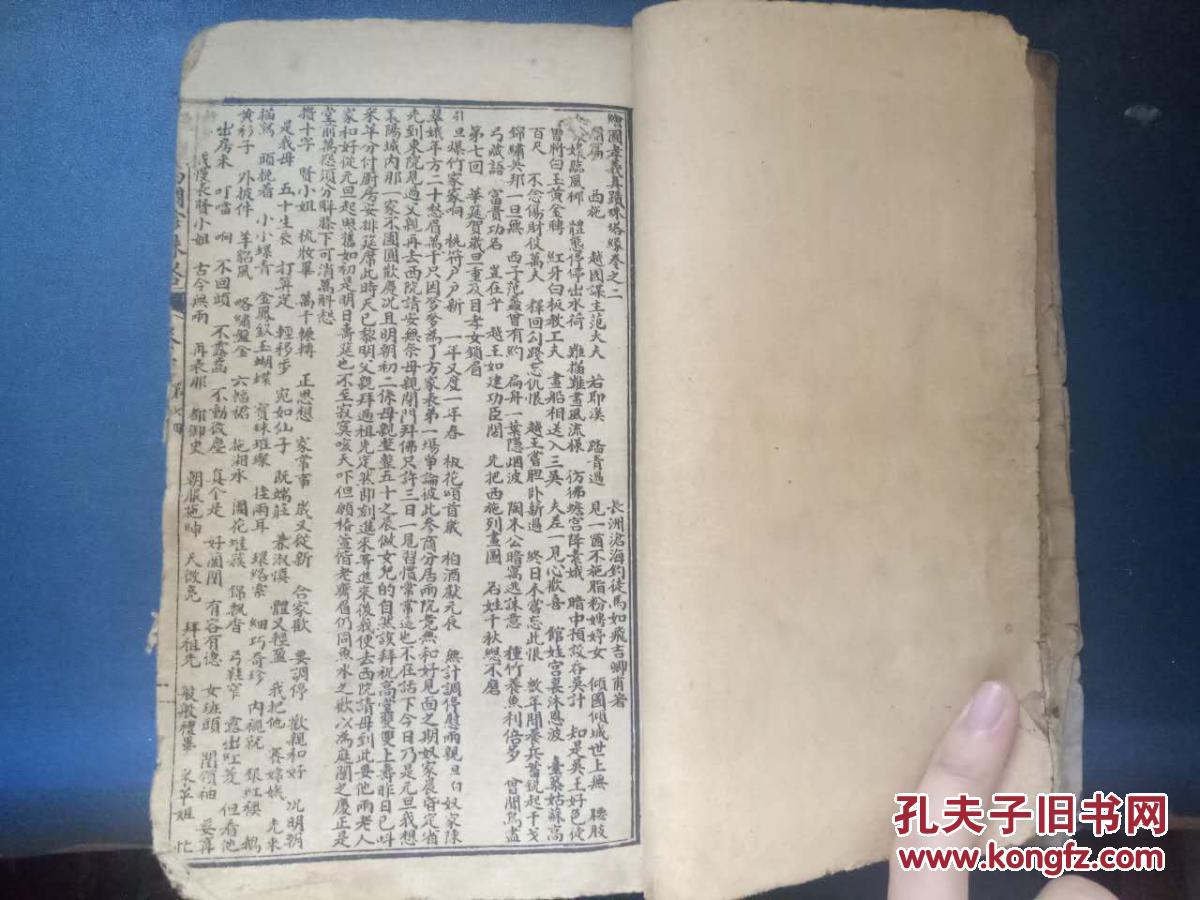 繪圖孝義真蹟珠塔緣卷之二
長洲滄海釣徒馬如飛吉卿甫著
西施 越國謀主范大夫 若耶溪 踏青過 見一個不施脂粉娉婷女 傾國傾城世上無 腰肢
嬝臨風柳 體態停停出水荷 難描難畫風流樣 彷彿蟾宮降素娥 暗中預設吞吳計 知是吳王好色徒
曾將白玉黃金聘 紅牙白板教工夫 畫船相送入三吳 夫差一見心歡喜 館娃宮裏沐恩波 臺築姑蘇高
百尺 不念傷財役萬夫 釋回勾踐忘仇恨 越王嘗胆卧薪過 終日未嘗忘此恨 數年間養兵蓄銳起干戈
錦繡吳邦一旦無 西子范蠡曾有約 扁舟一葉隱烟波 陶朱公暗寓逃誅意 種竹養魚利倍多 曾聞鳥盡
弓藏語 富貴功名 豈在乎 越王如建功臣閣 先把西施列畫圖 名姓千秋總不磨
第七回 華筵賀歲旦重及日孝女鎖眉
引旦爆竹家家响 桃符户户新 一年又度一年春 椒花頌首歲 柏酒獻元辰 無計調停慰兩親旦白奴家陳
翠娥年方二十愁眉萬千只因爹爹為了方家表弟一場爭論彼此參商分居兩院竟無和好見面之期奴家晨昏定省
先到東院見過父親再去西院請安無奈母親閉門拜佛只許三日一見習慣常常這也不在話下今日乃是元旦我想
襄陽城內那一家不團圓歡慶况且明朝初二係母親整整五十之辰做女兒的自然該拜祝高堂雙雙上壽昨日已呌
采苹分付厨房安排筵席此時天已黎明父親拜過祖先定然即刻進來等進來後我便去西院請母到此要他兩老人
家和好從元旦起照舊如初是明日壽筵也不至寂寞唉天吓但願椿萱偕老齊眉仍同魚水之歡以為庭闈之慶正是
堂前萬怨須分解膝下可消萬斛愁
搢十字 賢小姐 梳妝畢 萬千轉轉 正思想 家常事 歲又從新 合家歡 要調停 歡親和好 况明朝
是我母 五十生辰 打算定 輕移步 宛如仙子 既端莊 兼淑慎 體又輕盈 我把他 賽嫦娥 先來
描寫 頭挽着 小小螺青 金鳳釵玉蝴蝶 寶珠璀璨 挂兩耳 環珞索 細巧奇珍 內襯就 銀紅襖 鵝
黃衫子 外披件 羊貂風 咯繡盤金 六幅裙 拖湘水 闌花堆簇 錦飄香 弓鞋窄 露出紅菱 但看他
出房來 叮噹 响 不回頭 不露齒 不動微塵 真个是 好閨閫 有容有德 女班頭 閨領袖
慢表賢小姐 古今無兩 再表那 都御史 朝服拖紳 天微亮 拜祖先 般般禮畢 采苹姐